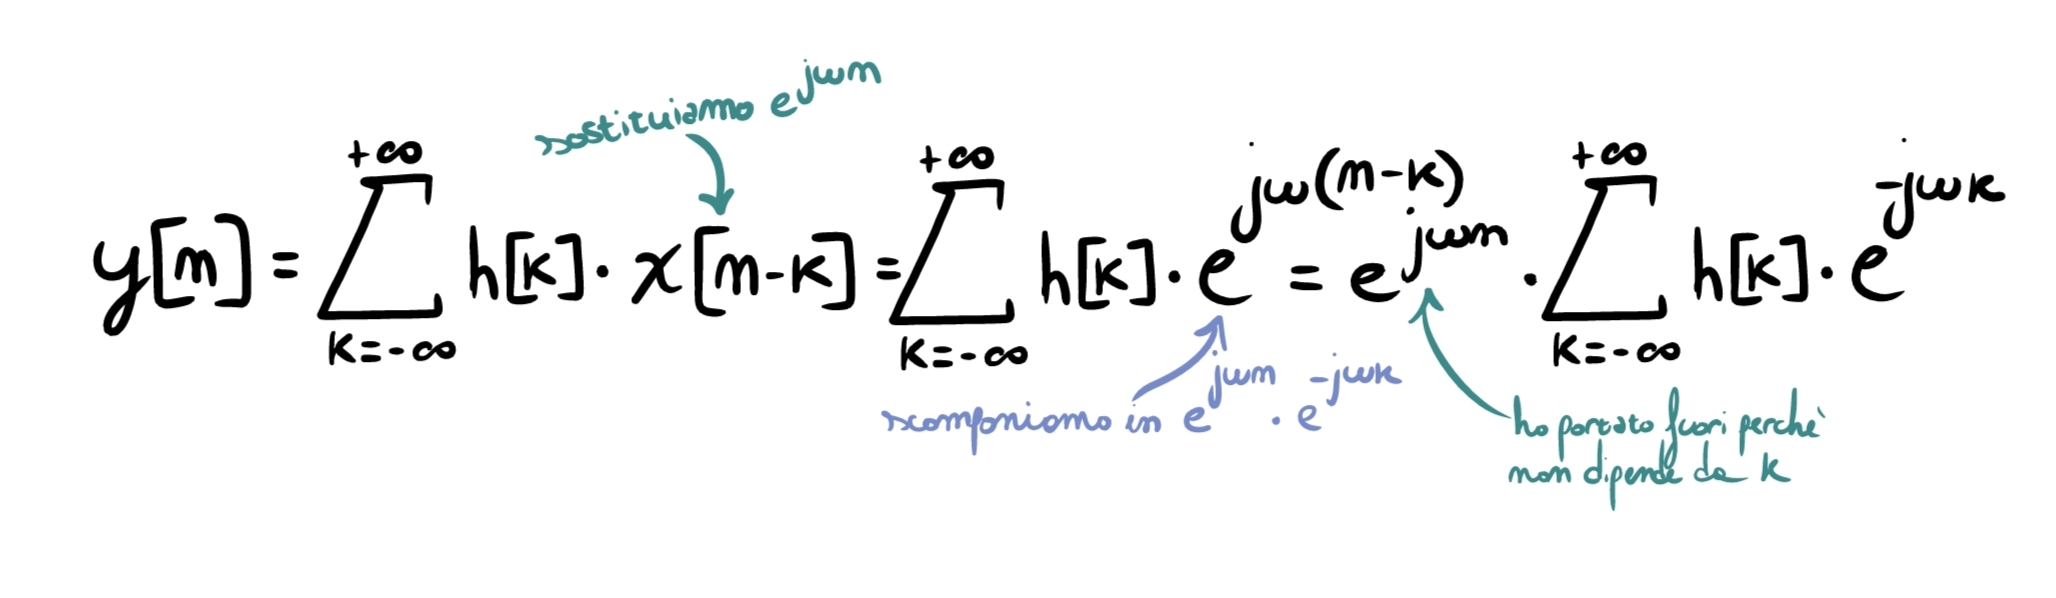 sostituiamo e^{jωn}
y[n] = \sum_{k=-∞}^{+∞} h[k] · x[n-k] = \sum_{k=-∞}^{+∞} h[k] · e^{jω(n-k)} = e^{jωn} · \sum_{k=-∞}^{+∞} h[k] · e^{-jωk}
scomponiamo in e^{jωn} · e^{-jωk}
ho portato fuori perchè
non dipende da k